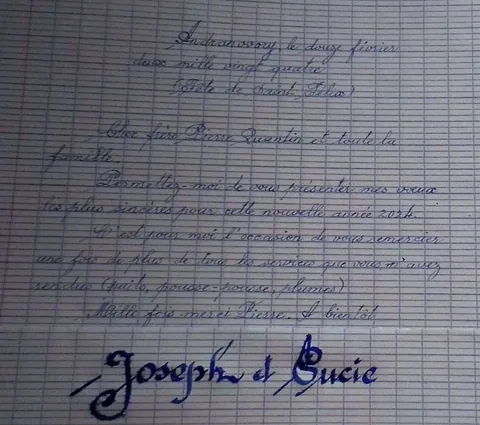 Andranovory, le douze février
deux mille vingt quatre
(Fête de Saint Félix)
Cher frère Pierre Quantin et toute la
famille.
Permettez-moi de vous présenter mes vœux
les plus sincères pour cette nouvelle année 2024.
C'est pour moi l'occasion de vous remercier
une fois de plus de tous les services que vous m'avez
rendus (puits, pousse-pousse, plumes)
Mille fois merci Pierre. A bientôt
Joseph et Lucie